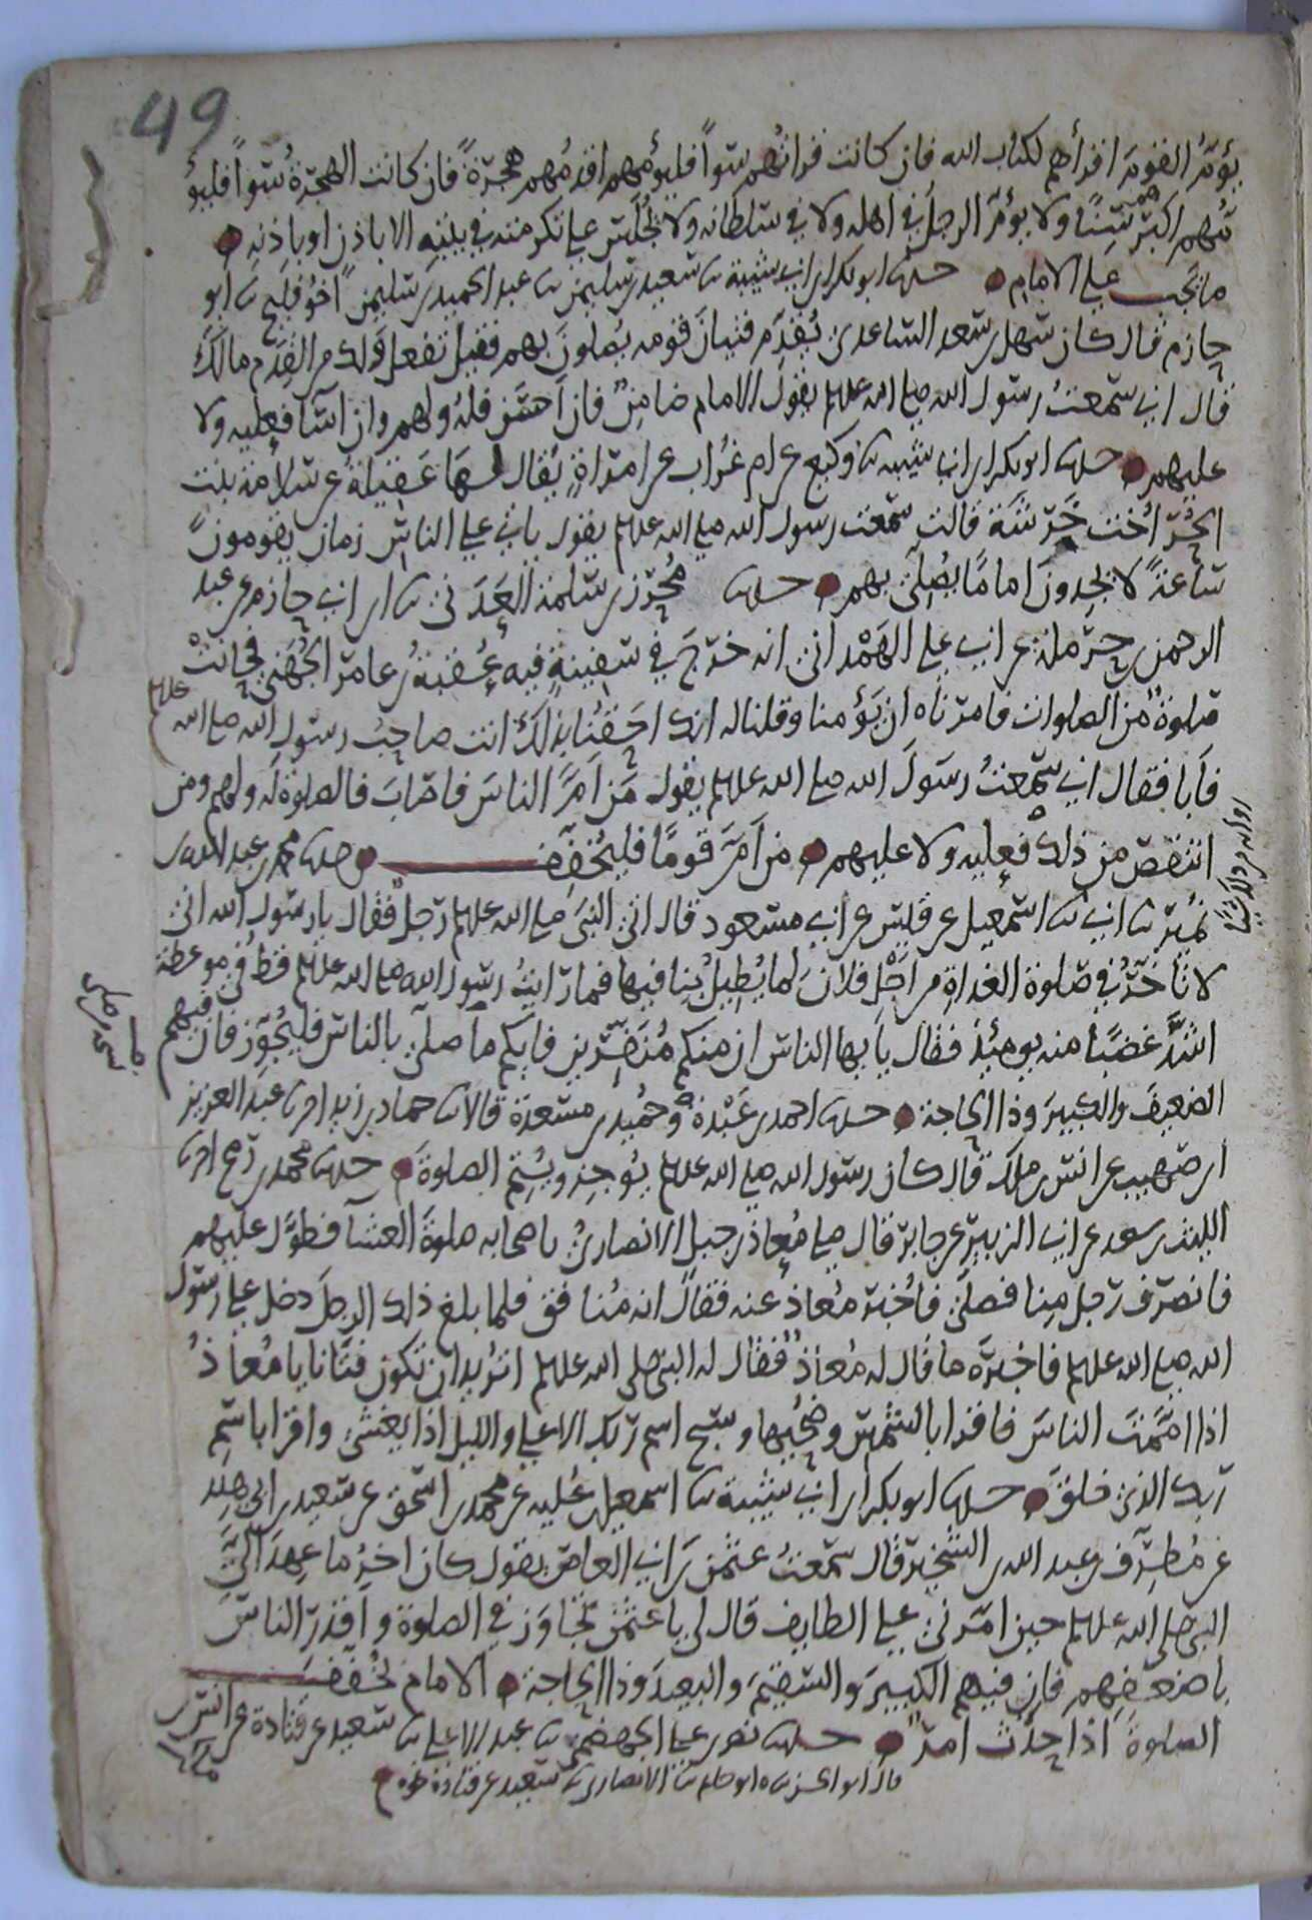 49
يؤم القوم اقرأهم لكتاب الله فان كانت قراتهم سوآ فليؤمهم اقدمهم هجرة فان كانت الهجرة سوآ فليؤ
مهم اكبرهم سنا ولا يؤم الرجل في اهله ولا في سلطانه ولا تجلس على تكرمته في بيته الا باذن او باذنه
ما يجب على الامام حدثنا ابو بكر ابن ابي شيبة ثنا سعيد بن سليمن ثنا عبد الحميد بن سليمن اخو فليح ثنا ابو
حازم قال كان سهل بن سعد الساعدي يقدم فتيان قومه يصلون بهم فقيل تفعل ولك من القدم مالك
قال اني سمعت رسول الله صلى الله عليه وسلم يقول الامام ضامن فان احسن فله ولهم وان اسآ فعليه ولا
عليهم حدثنا ابو بكر ابن ابي شيبه ثنا وكيع عن ام غراب عن امراة يقال لها عقيلة عن سلامة بنت
الحر اخت خرشة قالت سمعت رسول الله صلى الله عليه وسلم يقول ياتي على الناس زمان يقومون
ساعة لا يجدون اماما يصلي بهم حدثنا محرز بن سلمة العدني ثنا ابن ابي حازم عن عبد
الرحمن بن حرملة عن ابي علي الهمداني انه خرج في سفينة فيه عقبة بن عامر الجهني فحانت
صلوة من الصلوات فامرناه ان يؤمنا وقلنا له انك احقنا بذلك انت صاحب رسول الله صلى الله عليه وسلم
فابا فقال اني سمعت رسول الله صلى الله عليه وسلم يقول من ام الناس فاصاب فالصلوة له ولهم ومن
انتقص من ذلك فعليه ولا عليهم من ام قوما فليخفف حدثنا محمد بن عبد الله بن
نمير ثنا ابي ثنا اسمعيل عن قيس عن ابي مسعود قال اتى النبي صلى الله عليه وسلم رجل فقال يا رسول الله اني
لاتاخر في صلوة الغداة من اجل فلان لما يطيل بنا فيها فما رايت رسول الله صلى الله عليه وسلم قط في موعظة
اشد غضبا منه يومئذ فقال يايها الناس ان منكم منفرين فايكم ما صلى بالناس فليجوز فان فيهم
الضعيف والكبير وذا الحاجة حدثنا احمد بن عبدة وحميد بن مسعدة قالا ثنا حماد بن زيد انا عبد العزيز
ابن صهيب عن انس بن ملك قال كان رسول الله صلى الله عليه وسلم يوجز ويتم الصلوة حدثنا محمد بن رمح انا
الليث بن سعد عن ابي الزبير عن جابر قال صلى معاذ بن جبل الانصاري باصحابه صلوة العشآ فطول عليهم
فانصرف رجل منا فصلى فاخبر معاذ عنه فقال انه منافق فلما بلغ ذلك الرجل دخل على رسول
الله صلى الله عليه وسلم فاخبره ما قال له معاذ فقال له النبي صلى الله عليه وسلم اتريد ان تكون فتانا يا معاذ
اذا اممت الناس فاقرا بالشمس وضحيها وسبح اسم ربك الاعلى والليل اذا يغشى واقرا باسم
ربك الذي خلق حدثنا ابو بكر ابن ابي شيبة ثنا اسمعيل بن علية عن محمد بن اسحق عن سعيد بن ابي هند
عن مطرف بن عبد الله بن الشخير قال سمعت عثمن بن ابي العاص يقول كان اخر ما عهد الي
النبي صلى الله عليه وسلم حين امرني على الطايف قال لي يا عثمن تجاوز في الصلوة واقدر الناس
باضعفهم فان فيهم الكبير والسقيم والبعيد وذا الحاجة الامام يخفف
الصلوة اذا حدث امر حدثنا نصر بن علي الجهضمي ثنا عبد الاعلى ثنا سعيد عن قتادة عن انس بن
ملك
قال ابو الحسن ثنا ابو حاتم ثنا الانصاري ثنا سعيد عن قتادة نحوه